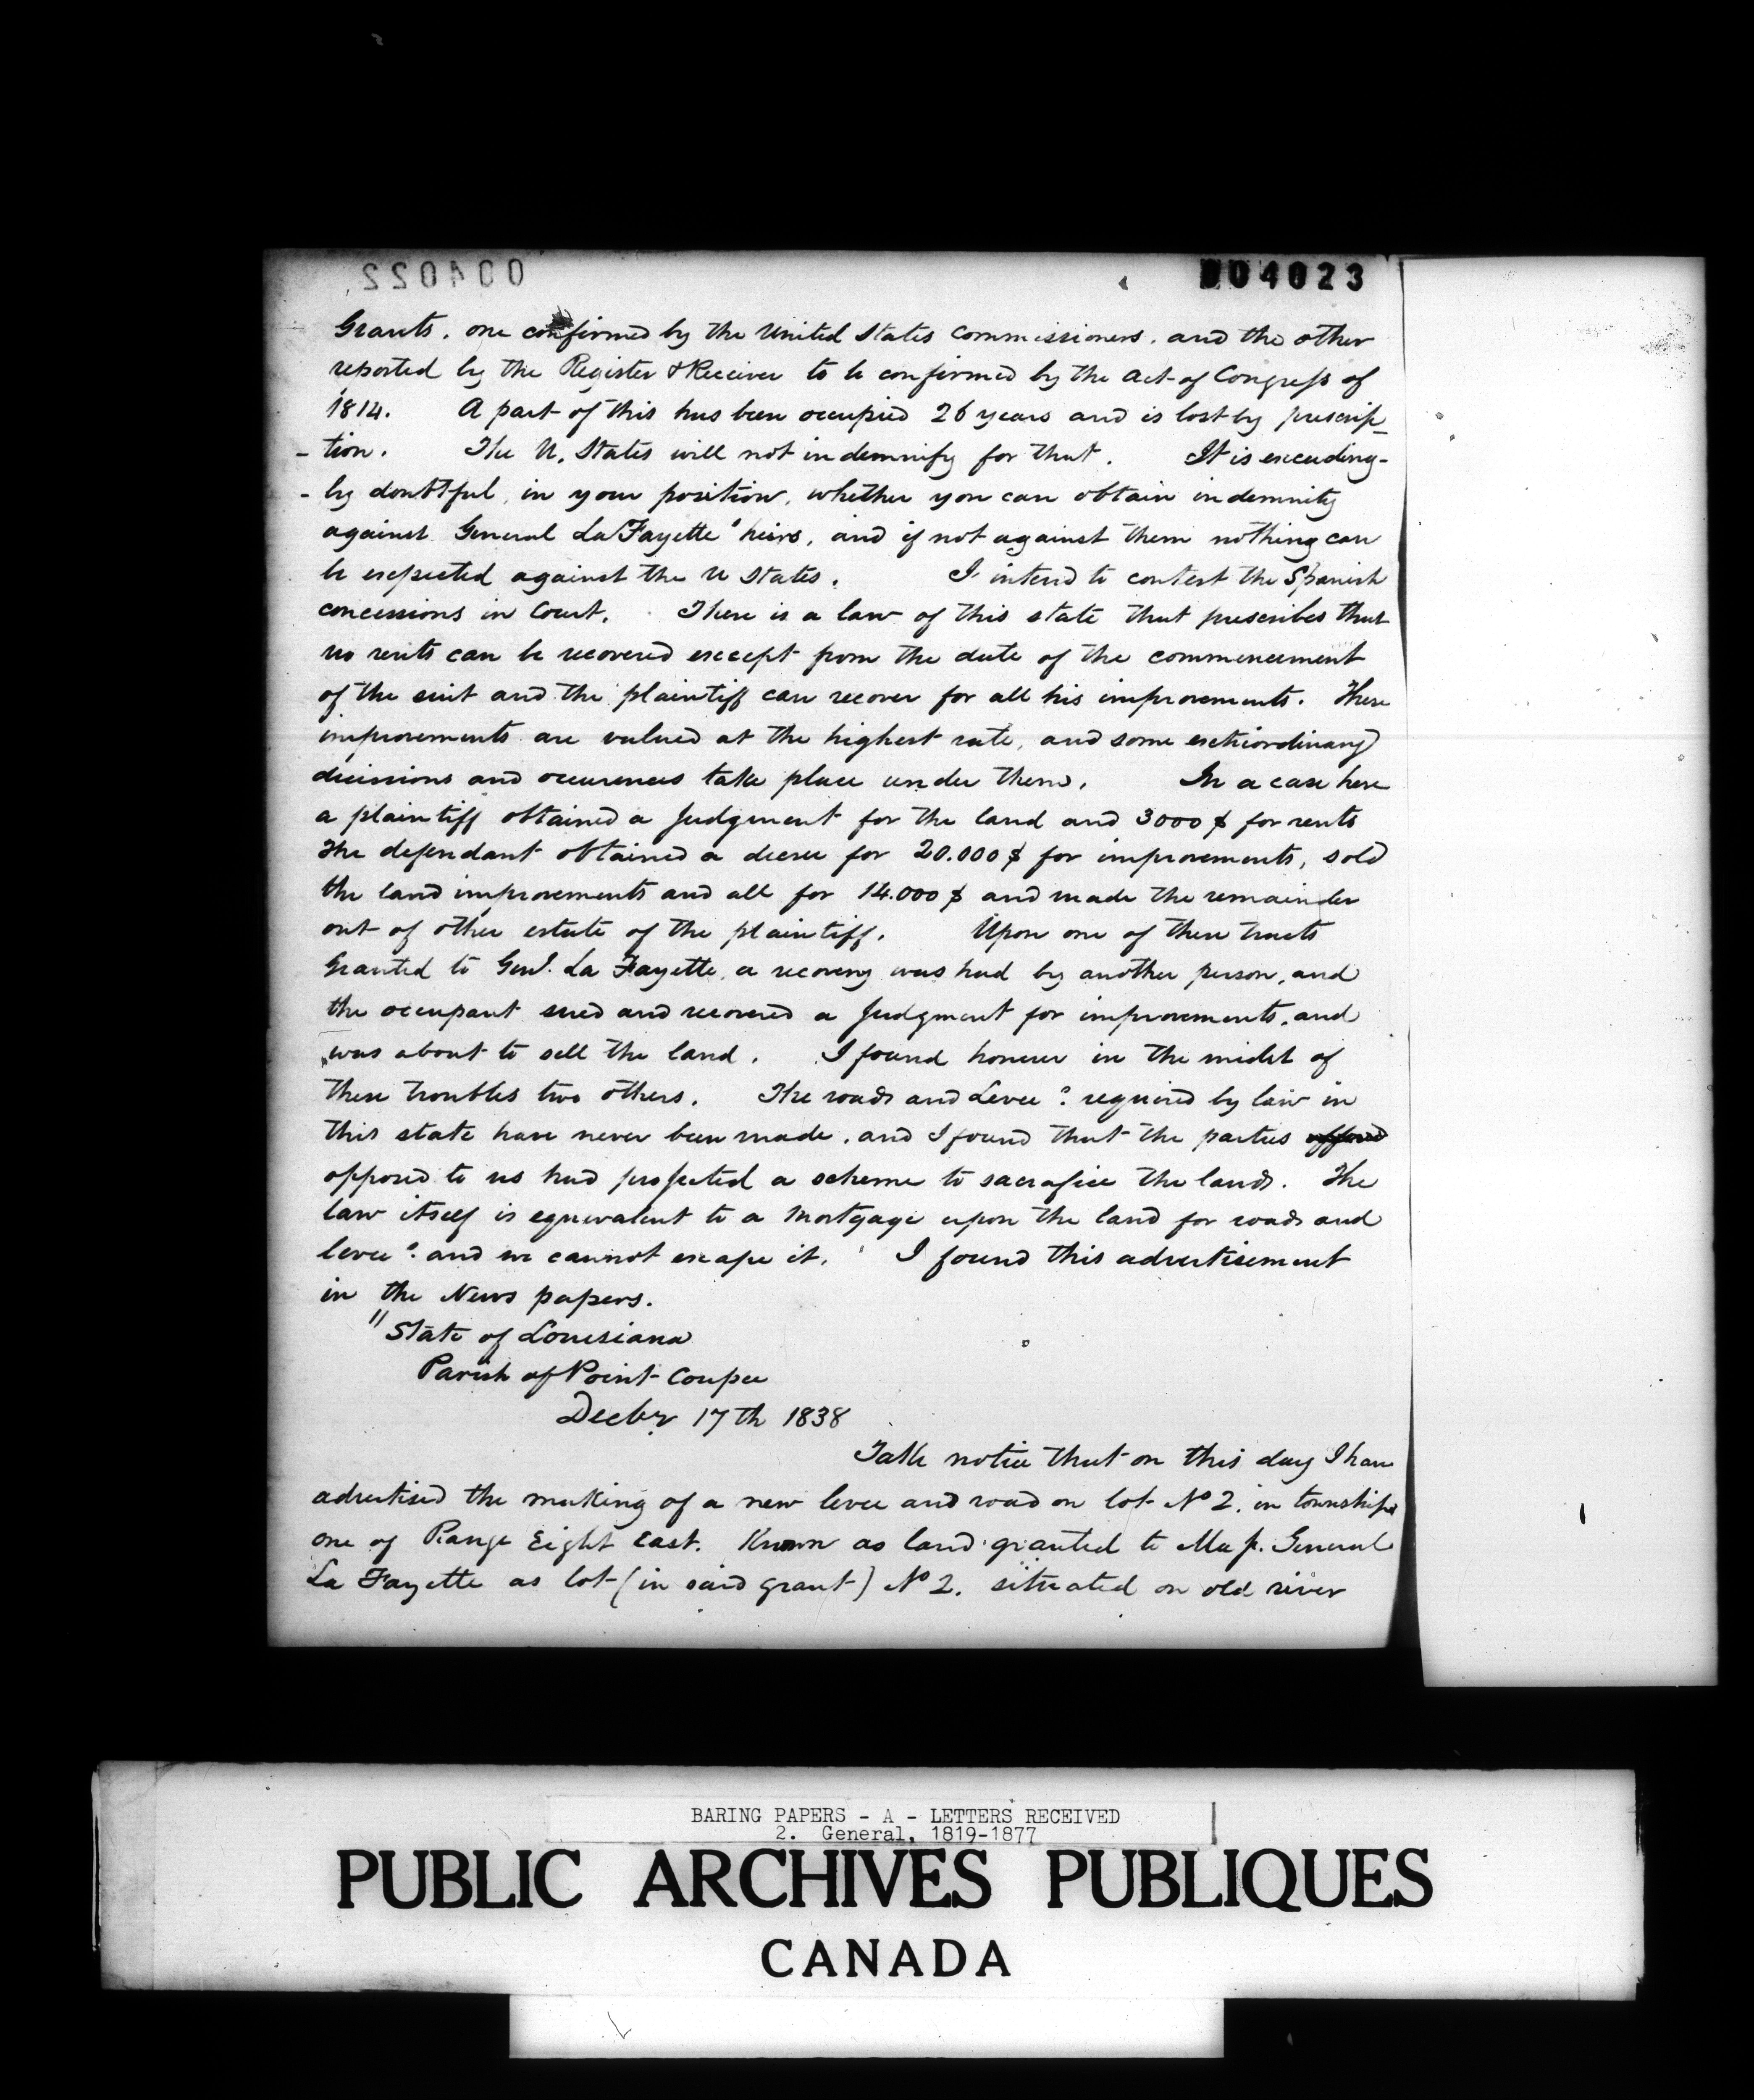 004022
004023
Grants. one confirmed by the United States Commissioners. and the other
reported by the Register & Receiver to be confirmed by the Act of Congress of
1814. A part of this has been occupied 26 years and is lost by prescrip-
-tion. The U. States will not indemnify for that. It is exceeding-
-ly doubtful, in your position, whether you can obtain indemnity
against General La Fayette's heirs, and if not against them nothing can
be expected against the U States. I intend to contest the Spanish
concessions in Court. There is a law of this state that prescribes that
no rents can be recovered except from the date of the commencement
of the suit and the plaintiff can recover for all his improvements. These
improvements are valued at the highest rate, and some extriordinary
decisions and occurences take place under them. In a case here
a plaintiff obtained a Judgment for the land and 3000 $ for rents
The defendant obtained a decree for 20.000 $ for improvements, sold
the land improvements and all for 14.000 $ and made the remainder
out of other estate of the plaintiff. Upon one of these tracts
Granted to Genl. La Fayette, a recovery was had by another person, and
the occupant sued and recovered a Judgment for improvements, and
was about to sell the land. I found however in the midst of
these troubles two others. The roads and Levee's required by law in
this state have never been made, and I found that the parties
opposed to us had projected a scheme to sacrafice the lands. The
law itself is equivalent to a Mortgage upon the land for roads and
levee's and we cannot escape it. I found this advertisement
in the News papers.
"State of Louisiana
Parish of Point Coupee
Decbr 17th 1838
Take notice that on this day I have
advertised the making of a new levee and road on lot No 2. in township
one of Range Eight East. Known as land granted to Maj. General
La Fayette as lot (in said grant) No 2. situated on old river
BARING PAPERS - A - LETTERS RECEIVED
2. General, 1819-1877
PUBLIC ARCHIVES PUBLIQUES
CANADA